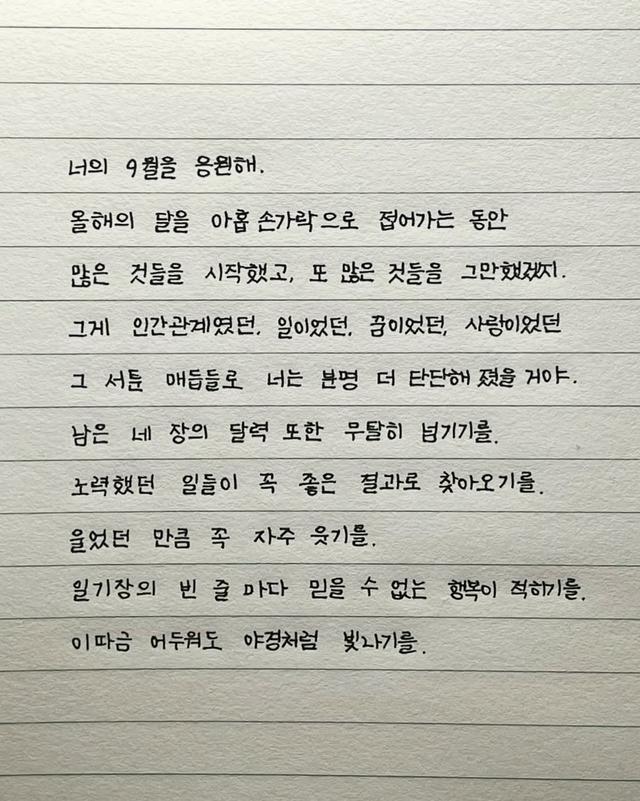 너의 9월을 응원해.
올해의 달을 아홉 손가락으로 접어가는 동안
많은 것들을 시작했고, 또 많은 것들을 그만했겠지.
그게 인간관계였던, 일이었던, 꿈이었던, 사랑이었던
그 서툰 매듭들로 너는 분명 더 단단해 졌을 거야.
남은 네 장의 달력 또한 무탈히 넘기기를.
노력했던 일들이 꼭 좋은 결과로 찾아오기를.
울었던 만큼 꼭 자주 웃기를.
일기장의 빈 줄 마다 믿을 수 없는 행복이 적히기를.
이따금 어두워도 야경처럼 빛나기를.